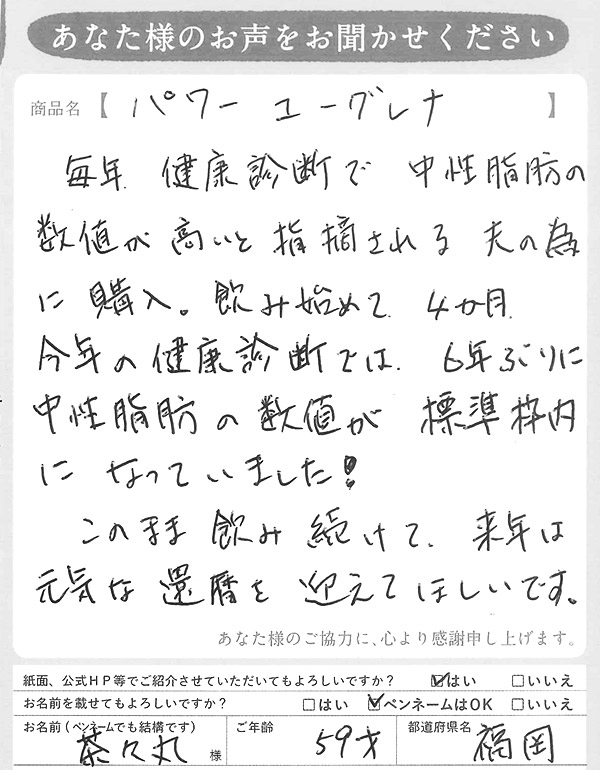 あなた様のお声をお聞かせください
商品名【 パワー ユーグレナ 】
毎年 健康診断で 中性脂肪の
数値が高いと指摘される 夫の為
に購入。飲み始めて、4か月、
今年の健康診断では、6年ぶりに
中性脂肪の数値が 標準枠内
に なっていました!
このまま 飲み続けて、来年は
元気な還暦を迎えてほしいです。
あなた様のご協力に、心より感謝申し上げます。
紙面、公式HP等でご紹介させていただいてもよろしいですか? ☑はい □いいえ
お名前を載せてもよろしいですか? □はい ☑ペンネームはOK □いいえ
お名前(ペンネームでも結構です) 茶々丸 様 ご年齢 59才 都道府県名 福岡